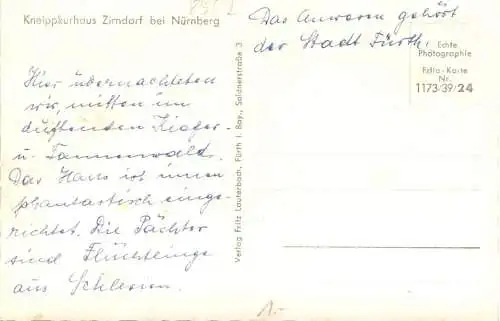 Kneippkurhaus Zirndorf bei Nürnberg
Hier übernachteten
wir, mitten im
duftenden Kiefer-
u. Tannenwald.
Das Haus ist innen
phantastisch einge-
richtet. Die Pächter
sind Flüchtlinge
aus Schlesien.
Verlag Fritz Lauterbach, Fürth i. Bay., Saldnerstraße 3
Das Anwesen gehört
der Stadt Fürth.
Echte
Photographie
Frila-Karte
Nr.
1173/39/24
1.-